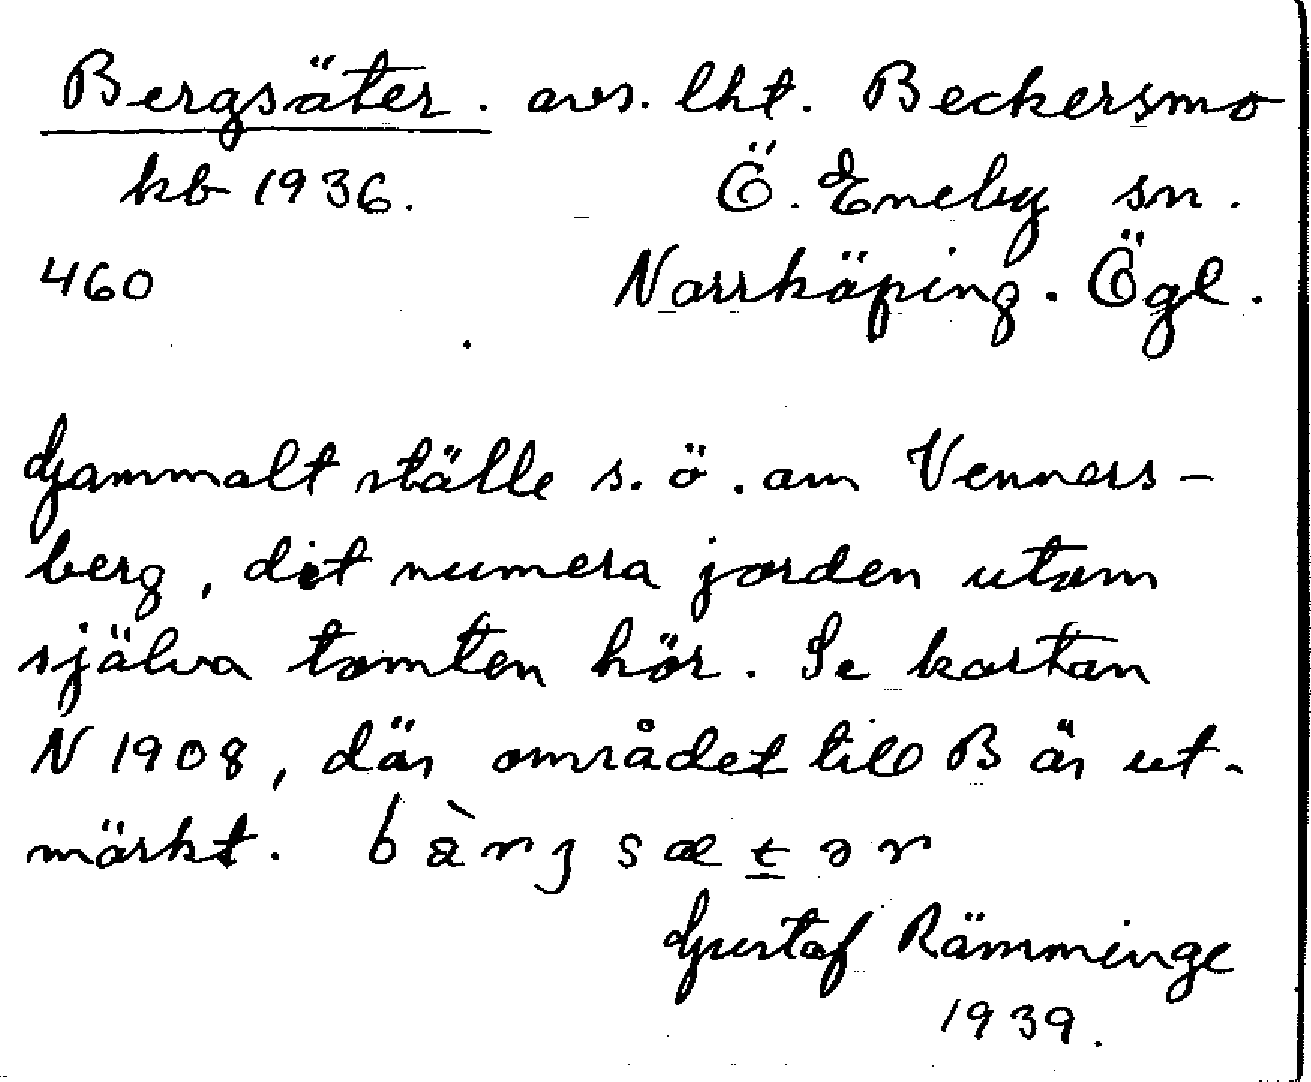 Bergsäter. avs. lht. Beckersmo
kb 1936. Ö. Eneby sn.
460 Norrköping. Ögl.
Gammalt ställe s. ö. om Venners-
berg, dit numera jorden utom
själva tomten hör. Se kartan
N 1908, där området till B är ut-
märkt. bàrgsætər
Gustaf Rämminge
1939.